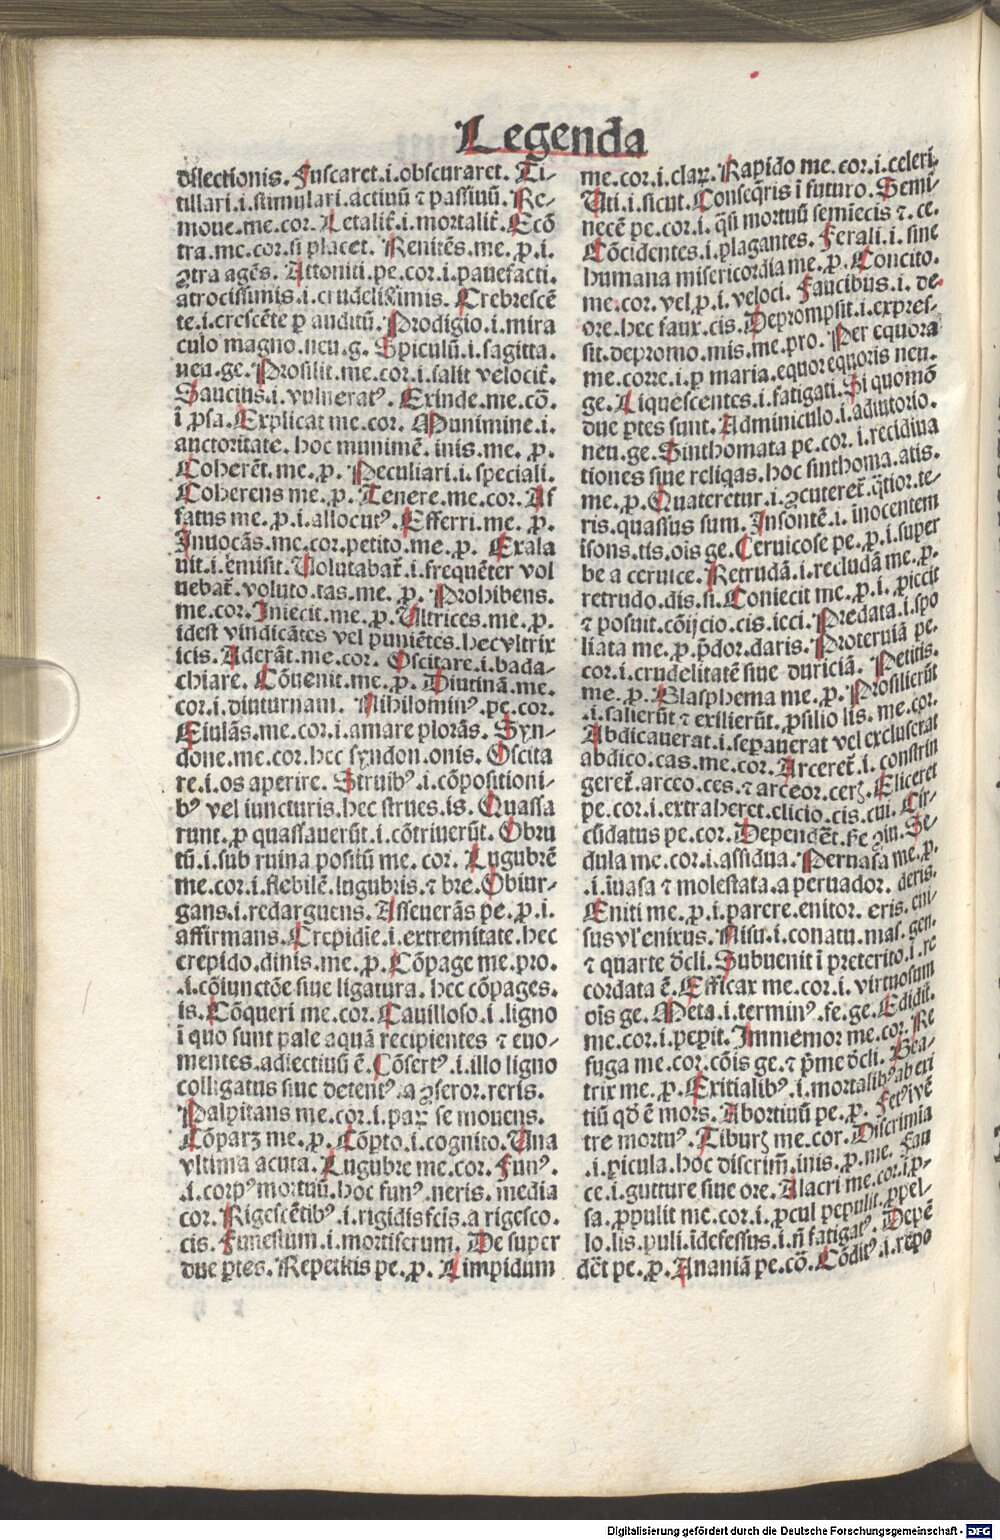 Legenda
dilectionis. Fuscaret.i.obscuraret. Ti-
tillari.i.stimulari.actiuũ ⁊ passiuũ. Re-
moue.me.cor. Letalit̃.i.mortalit̃. Ecõ
tra.me.cor.si placet. Renitẽs.me.ꝓ.i.
ꝯtra agẽs. Attoniti.pe.cor.i.pauefacti.
atrocissimis.i.crudelissimis. Crebrescẽ
te.i.crescẽte ꝑ auditũ. Prodigio.i.mira
culo magno.neu.g. Spiculũ.i.sagitta.
neu.ge. Prosilit.me.cor.i.salit velocit̃.
Saucius.i.vulneratꝰ. Exinde.me.cõ.
ĩ ꝓsa. Explicat me.cor. Munimine.i.
auctoritate. hoc munimẽ. inis.me. ꝓ.
Coherẽt.me.ꝓ. Peculiari.i.speciali.
Coherens me.ꝓ. Tenere.me.cor. Af
fatus me.ꝓ.i.allocutꝰ. Efferri.me. ꝓ.
Inuocãs.me.cor.petito.me.ꝓ. Exala
uit.i.emisit. Uolutabat̃.i.frequẽter vol
uebat̃.voluto.tas.me. ꝓ. Prohibens.
me.cor. Iniecit.me.ꝓ. Ultrices.me.ꝓ.
idest vindicãtes vel puniẽtes.hec vltrix
icis. Aderãt.me.cor. Oscitare.i.bada-
chiare. Cõuenit.me.ꝓ. Diutinã.me.
cor.i.diuturnam. Nihilominꝰ.pe.cor.
Eiulãs.me.cor.i.amare plorãs. Syn-
done.me.cor.hec syndon.onis. Oscita
re.i.os aperire. Struibꝰ.i.cõpositioni-
bꝰ vel iuncturis.hec strues.is. Quassa
runt.ꝓ quassauerũt.i.cõtriuerũt. Obru
tũ.i.sub ruina positũ me. cor. Lugubrẽ
me.cor.i.flebilẽ.lugubris.⁊ bre. Obiur-
gans.i.redarguens. Asseuerãs pe.ꝓ.i.
affirmans. Crepidĩe.i.extremitate.hec
crepido.dinis.me.ꝓ. Cõpage me.pro.
.i.cõiunctõe siue ligatura. hec cõpages.
is. Cõqueri me.cor. Cauilloso.i.ligno
ĩ quo sunt pale aquã recipientes ⁊ euo-
mentes.adiectiuũ ẽ. Cõsertꝰ.i.illo ligno
colligatus siue detentꝰ.a ꝯseror.reris.
Palpitans me.cor.i.paꝝ se mouens.
Cõparꝫ me.ꝓ. Cõpto.i.cognito. Una
vltima acuta. Lugubre me.cor. Funꝰ.
.i.corpꝰ mortuũ.hoc funꝰ.neris. media
cor. Rigescẽtibꝰ.i.rigidis fcis.a rigesco.
cis. Funestum.i.mortiferum. De super
due ꝑtes. Repetitis pe.ꝓ. Limpidum
me.cor.i.claꝝ. Rapido me.cor.i.celeri.
Uti.i.sicut. Conseq̃ris ĩ futuro. Semi
necẽ pe.cor.i.q̃si mortuũ semĩecis ⁊.ce.
Cõcidentes.i.plagantes. Ferali.i.sine
humana misericordia me.ꝓ. Concito.
me.cor. vel ꝓ.i.veloci. Faucibus.i. de-
ore.hec faux.cis. Deprompsit.i.expres-
sit.depromo.mis.me.pro. Per equora
me.corre.i.ꝑ maria.equor equoris neu.
ge. Liquescentes.i.fatigati. Si quomõ
due ꝑtes sunt. Adminiculo.i.adiutorio.
neu.ge. Sinthomata pe.cor.i.recidiua
tiones siue reliq̃as.hoc sinthoma.atis.
me.ꝓ. Quateretur.i.ꝯcuteret̃.q̃tior.te-
ris.quassus sum. Insontẽ.i. ĩnocentem
ĩsons.tis.oĩs ge. Ceruicose pe.ꝓ.i.super
be a ceruice. Retrudã.i.recludã me.ꝓ.
retrudo.dis.si. Coniecit me.ꝓ.i. ꝓiecit
⁊ posuit.cõijcio.cis.ieci. Predata.i.spo
liata me.ꝓ.p̃dor.daris. Proteruiã pe.
cor.i.crudelitatẽ siue duriciã. Petitis.
me.ꝓ. Blasphema me.ꝓ. Prosilierũt
.i.salierũt ⁊ exilierũt. ꝓsilio lis. me.cor.
Abdicauerat.i.seꝑauerat vel excluserat
abdico.cas.me.cor. Arceret̃.i. constrin
geret̃.arceo.ces.⁊ arceor.cerꝫ. Eliceret
pe.cor.i.extraheret.elicio.cis.cui. Cir-
cũdatus pe.cor. Dependẽt. Se-
dula me.cor.i.assidua. Peruasa me.ꝓ.
.i.ĩuasa ⁊ molestata.a peruador. deris.
Eniti me.ꝓ.i.parere.enitor. eris.eni-
sus vꝉ enixus. Nisu.i.conatu.mas.gen.
⁊ quarte dcli. Subuenit ĩ preterito.i.re
cordata ẽ. Efficax me.cor.i. virtuosum
oĩs ge. Meta.i.terminꝰ.fe.ge. Edidit.
me.cor.i.peꝑit. Immemor me.cor. Re
fuga me.cor.cõis ge.⁊ p̃me dcli. Bea-
trix me.ꝓ. Exitialibꝰ.i.mortalibꝰ ab eri
tiũ qd ẽ mors. Abortiuũ pe.ꝓ. Fetꝰ ĩ vẽ
tre mortuꝰ. Tiburꝫ me.cor. Discrimia
.i.ꝑicula.hoc discrim̃.inis.ꝓ.me. Fau
ce.i.gutture siue ore. Alacri me.cor.i.ꝓ-
sa. ꝓpulit me.cor.i.ꝓcul pepulit.ꝓpel-
lo.lis.puli.ĩdefessus.i.ñ fatigatꝰ. Depẽ
dẽt pe.ꝓ. Ananiã pe.cõ. Cõditꝰ.i.repo
Digitalisierung gefördert durch die Deutsche Forschungsgemeinschaft - DFG